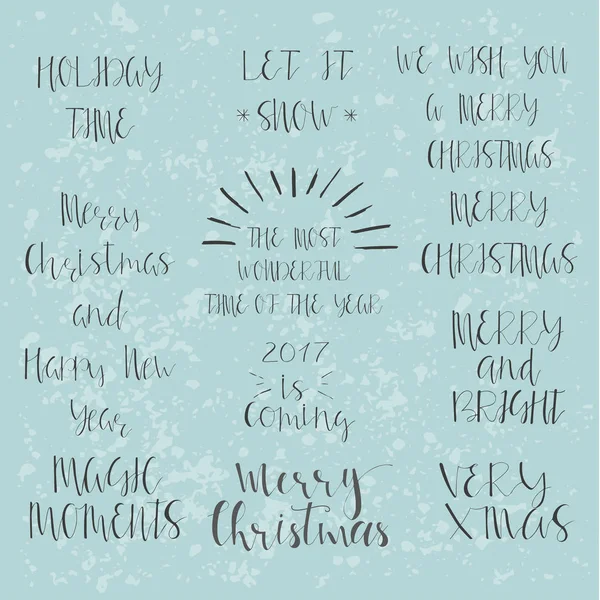 HOLIDAY
TIME
LET IT
*SNOW*
WE WISH YOU
a MERRY
CHRISTMAS
Merry
Christmas
and
Happy New
Year
THE MOST
WONDERFUL
TIME OF THE YEAR
MERRY
CHRISTMAS
2017
is
Coming
MERRY
and
BRIGHT
MAGIC
MOMENTS
Merry
Christmas
VERY
XMAS